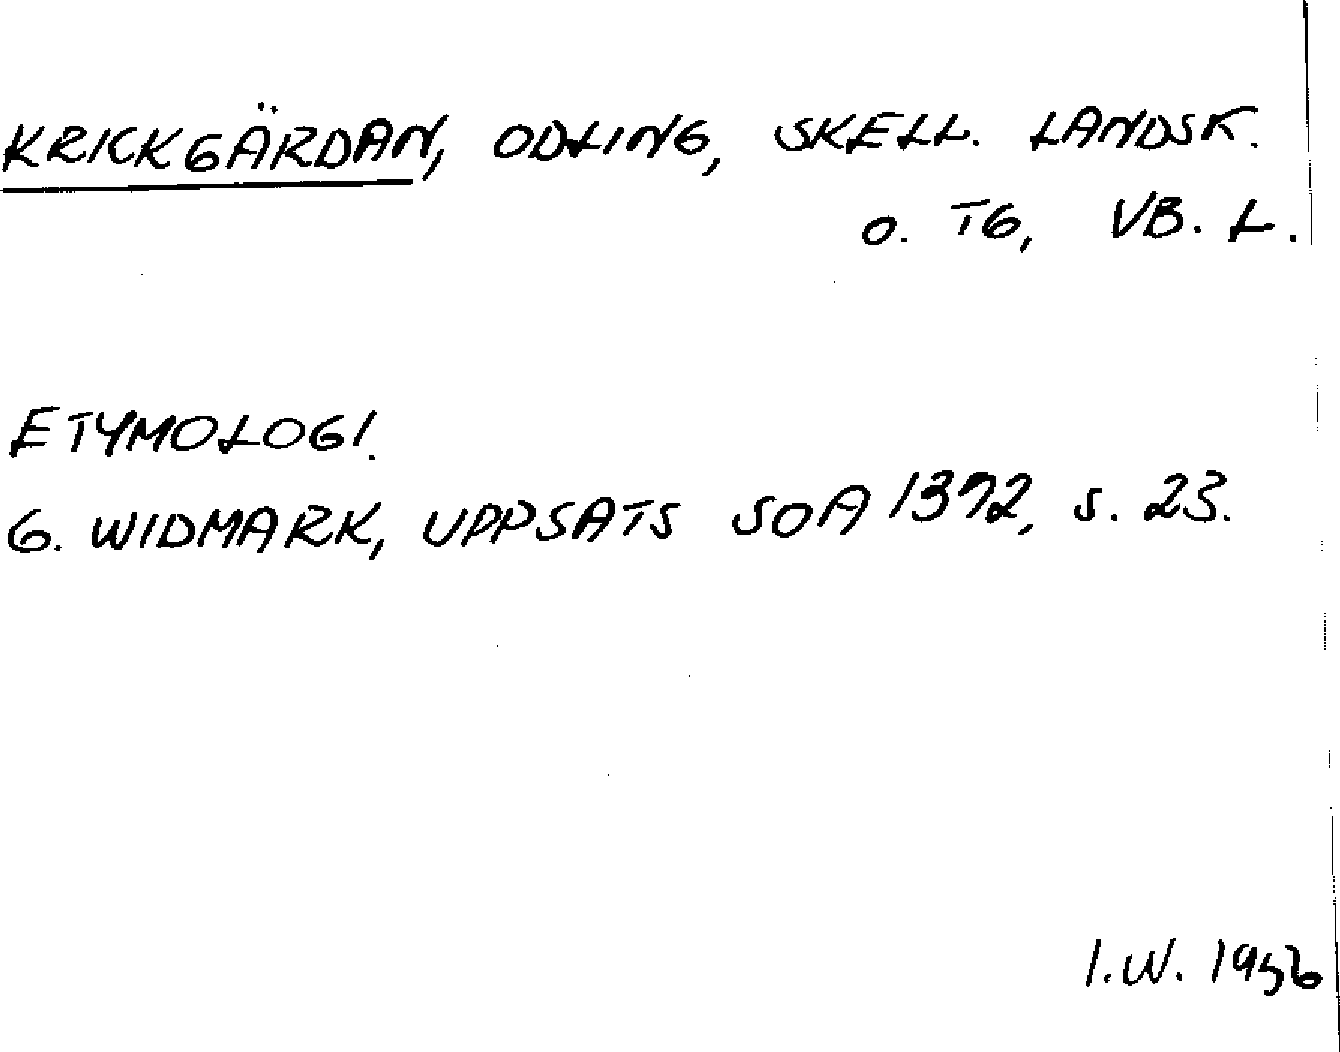 KRICKGÄRDAN, ODLING, SKELL. LANDSK.
O. TG, VB. L.
ETYMOLOGI.
G. WIDMARK, UPPSATS SOA 1372, S. 23.
I.W. 1956